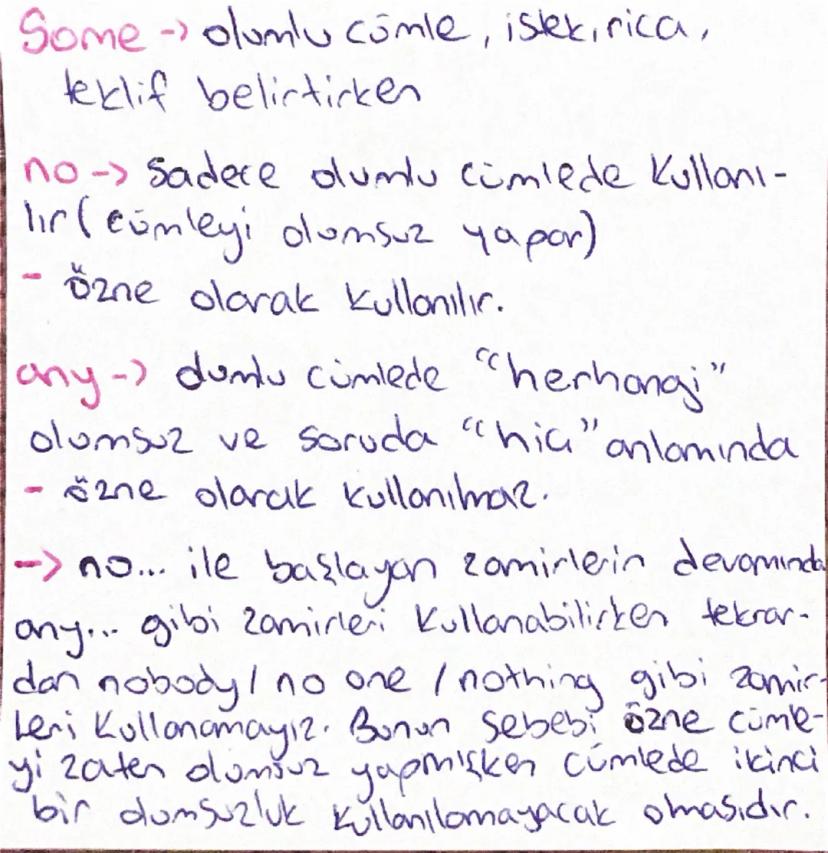 Some -> olumlu cümle, istek, rica,
teklif belirtirken
no -> sadece olumlu cümlede kullanı-
lır (cümleyi olumsuz yapar)
- özne olarak kullanılır.
any -> olumlu cümlede "herhangi"
olumsuz ve soruda "hiç" anlamında
- özne olarak kullanılmaz.
-> no... ile başlayan zamirlerin devamında
any... gibi zamirleri kullanabilirken tekrar-
dan nobody / no one / nothing gibi zamir-
leri kullanamayız. Bunun sebebi özne cümle-
yi zaten olumsuz yapmışken cümlede ikinci
bir olumsuzluk kullanılamayacak olmasıdır.